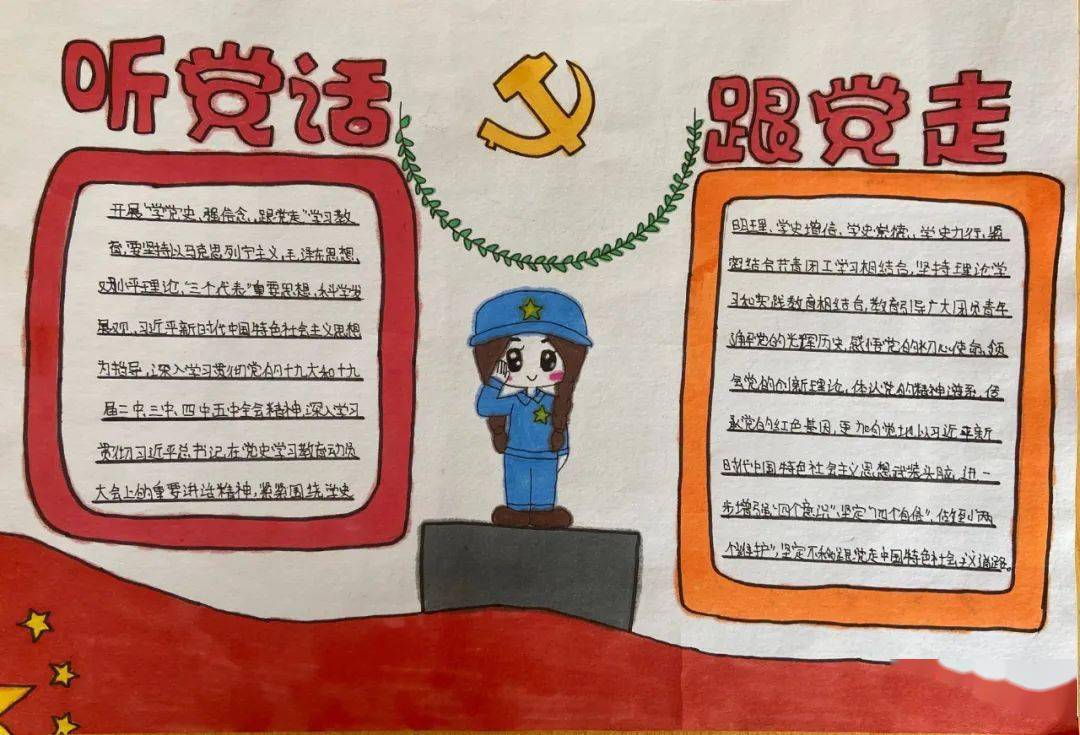 听党话
跟党走
开展“学党史、强信念、跟党走”学习教
育,要坚持以马克思列宁主义,毛泽东思想,
邓小平理论,“三个代表”重要思想,科学发
展观,习近平新时代中国特色社会主义思想
为指导,深入学习贯彻党的十九大和十九
届二中、三中、四中五中全会精神,深入学习
贯彻习近平总书记在党史学习教育动员
大会上的重要讲话精神,紧紧围绕学史
明理、学史增信、学史崇德、学史力行,紧
密结合共青团工学习相结合,坚持理论学
习和实践教育相结合,教育引导广大团员青年
党的光辉历史,感悟党的初心使命,领
会党的创新理论,体认党的精神谱系,传
承党的红色基因,更加自觉地以习近平新
时代中国特色社会主义思想武装头脑,进一
步增强“四个意识”、坚定“四个自信”、做到“两
个维护”,坚定不移跟党走中国特色社会主义道路。